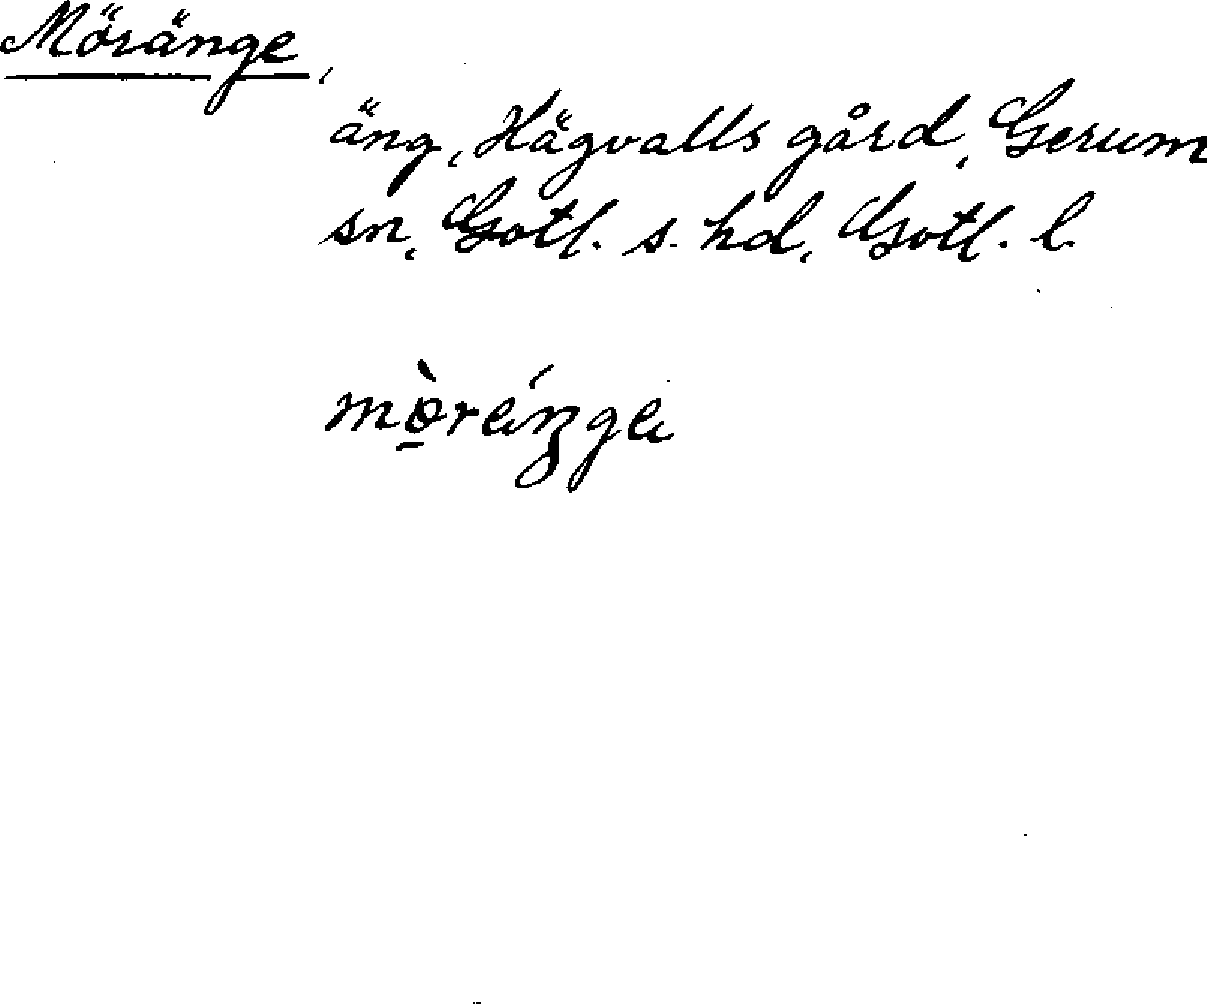 Möränge,
äng, Hägvalls gård, Gerum
sn, Gotl. s. hd, Gotl. l.